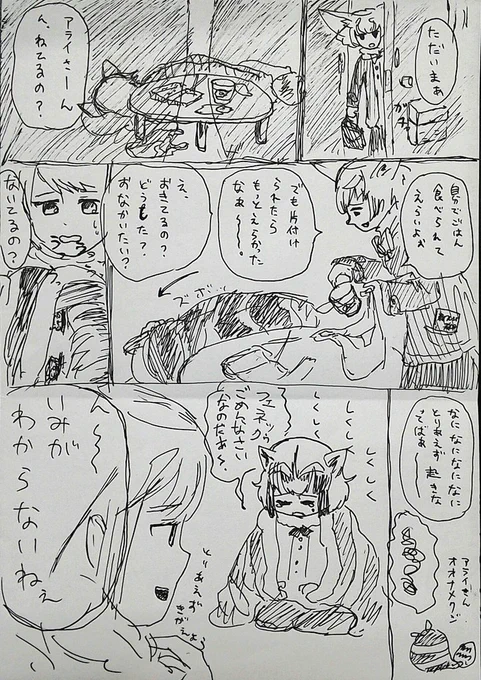 ただいまぁ
ガチャ
アライさーん
ん、ねてるの？
自分でごはん
食べられて
えらいよぉ
でも片付け
られたら
もっとえらかった
なぁ〜。
え、
おきてるの？
どうした？
おなかいたい？
ズボッ
ないてるの？
なになになになに
とりあえず起きな
てばぁ〜
アライさん
オオナメクジ
しくしく
しくしく
しくしく
フェネックゥ
ごめんなさい
なのだぁ〜、
ん〜
いみが
わからないねぇ
とりあえず
きがえよう